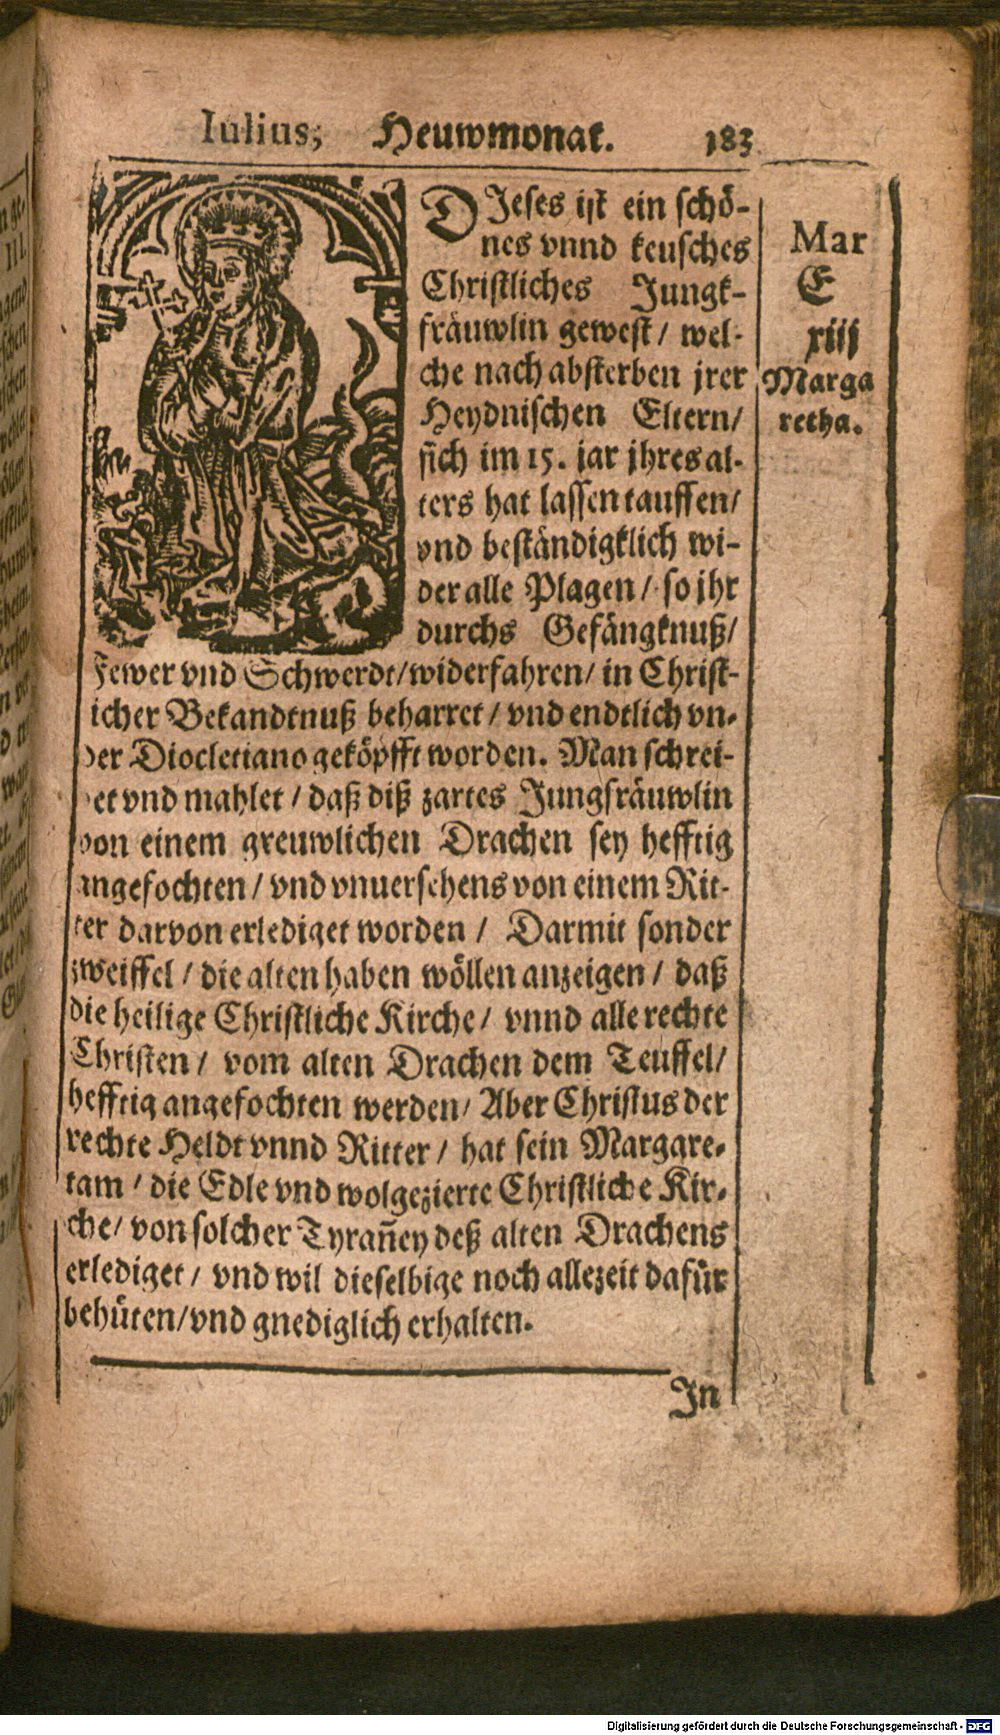 Iulius, Heuwmonat. 183
DJeses ist ein schö-
nes vnnd keusches
Christliches Jungk-
fräuwlin gewest / wel-
che nach absterben jrer
Heydnischen Eltern /
sich im 15. jar jhres al-
ters hat lassen tauffen /
vnd beständigklich wi-
der alle Plagen / so jhr
durchs Gefängknuß /
Fewer vnd Schwerdt / widerfahren / in Christ-
icher Bekandtnuß beharret / vnd endtlich vn-
der Diocletiano geköpfft worden. Man schrei-
et vnd mahlet / daß diß zartes Jungfräuwlin
von einem greuwlichen Drachen sey hefftig
angefochten / vnd vnuersehens von einem Rit-
ter darvon erlediget worden / Darmit sonder
zweiffel / die alten haben wöllen anzeigen / daß
die heilige Christliche Kirche / vnnd alle rechte
Christen / vom alten Drachen dem Teuffel /
hefftig angefochten werden / Aber Christus der
rechte Heldt vnnd Ritter / hat sein Margare-
tam / die Edle vnd wolgezierte Christliche Kir-
che / von solcher Tyrañey deß alten Drachens
erlediget / vnd wil dieselbige noch allezeit dafür
behüten / vnd gnediglich erhalten.
In
Mar
E
xiij
Marga
retha.
Digitalisierung gefördert durch die Deutsche Forschungsgemeinschaft - DFG